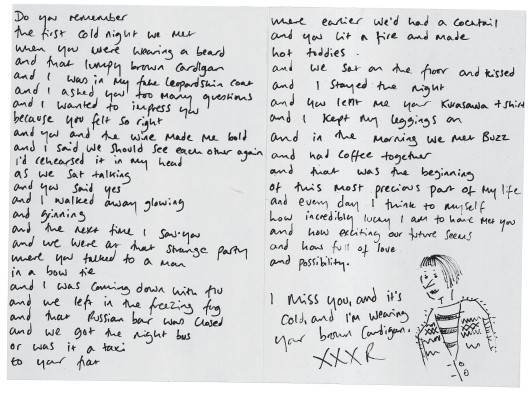 Do you remember
the first cold night we met
when you were wearing a beard
and that lumpy brown cardigan
and I was in my fake leopardskin coat
and I asked you too many questions
and I wanted to impress you
because you felt so right
and you and the wine made me bold
and I said we should see each other again
I'd rehearsed it in my head
as we sat talking
and you said yes
and I walked away glowing
and grinning
and the next time I saw you
and we were at that strange party
where you talked to a man
in a bow tie
and I was coming down with flu
and we left in the freezing fog
and that Russian bar was closed
and we got the night bus
or was it a taxi
to your flat
where earlier we'd had a cocktail
and you lit a fire and made
hot toddies.
and we sat on the floor and kissed
and I stayed the night
and you lent me your Kurosawa t shirt
and I kept my leggings on
and in the morning we met Buzz
and had coffee together
and that was the beginning
of this most precious part of my life
and every day I think to myself
how incredibly lucky I am to have met you
and how exciting our future seems
and how full of love
and possibility.
I miss you, and it's
cold, and I'm wearing
your brown cardigan.
XXXR